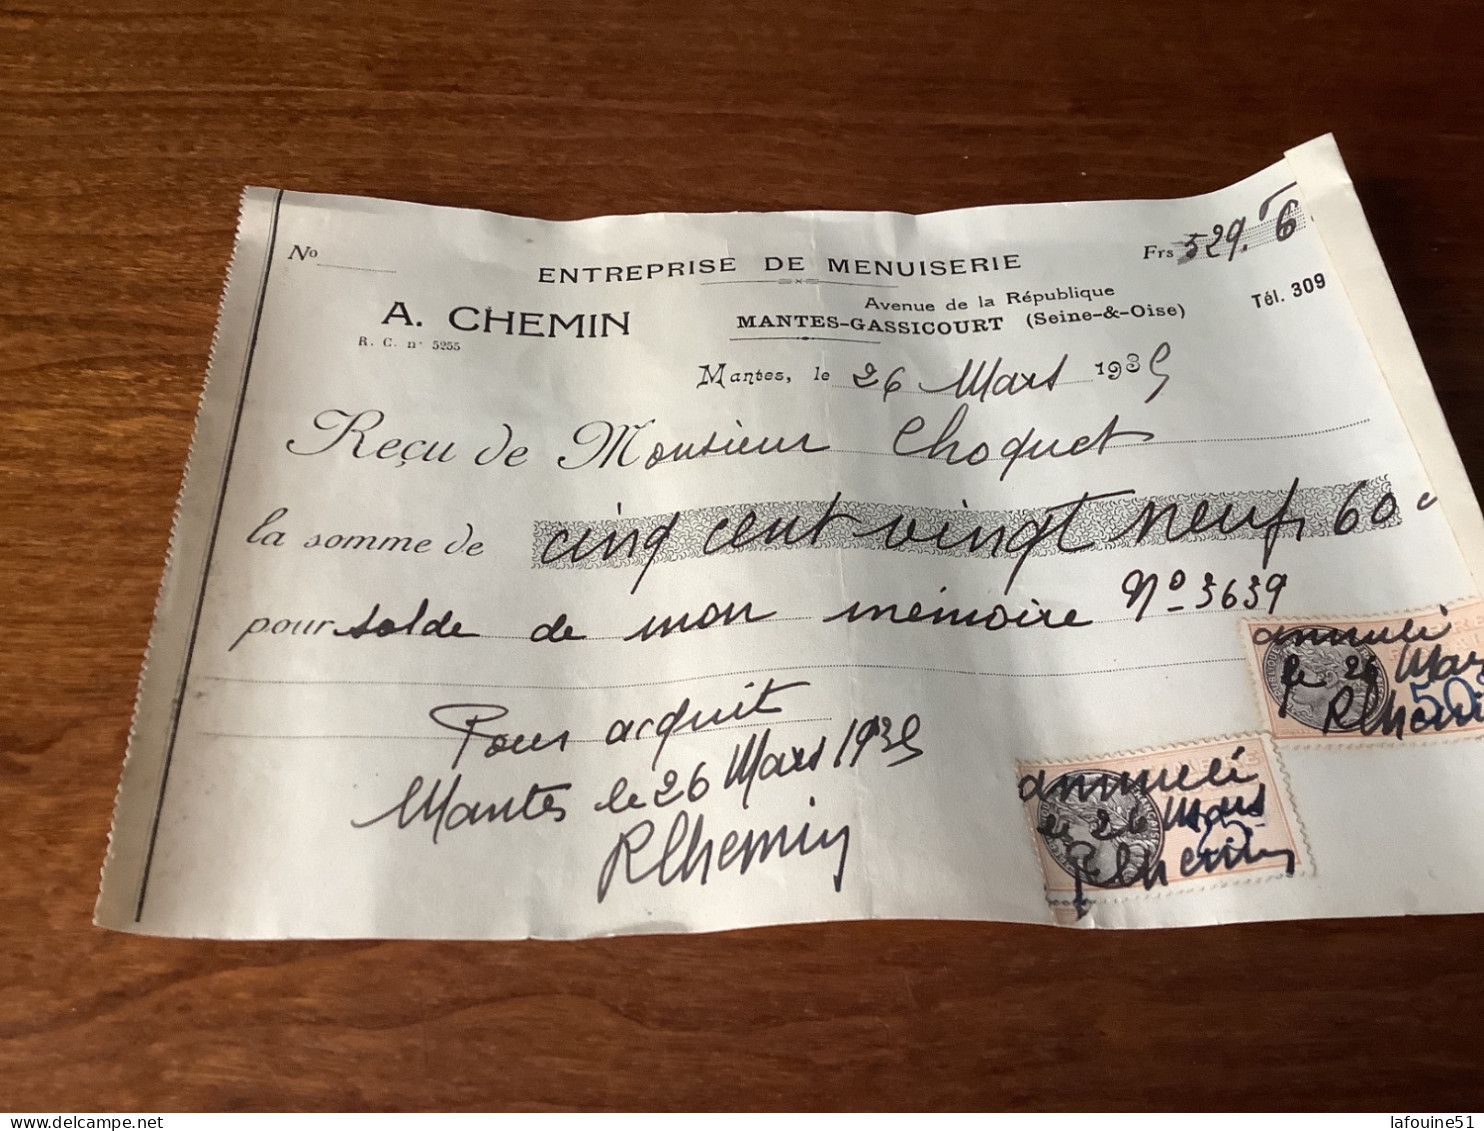 No
ENTREPRISE DE MENUISERIE
Frs 529. 6
A. CHEMIN
Avenue de la République
Tél. 309
R. C. n° 5255
MANTES-GASSICOURT (Seine-&-Oise)
Mantes, le 26 Mars 1935
Reçu de Monsieur Choquet
la somme de cinq cent vingt neuf, 60 c
pour solde de mon mémoire No 3639
Pour acquit
Mantes le 26 Mars 1935
RChemin
annulé
le 26 Mars
RChemin
50
annulé
le 26 Mars
RChemin
delcampe.net
lafouine51